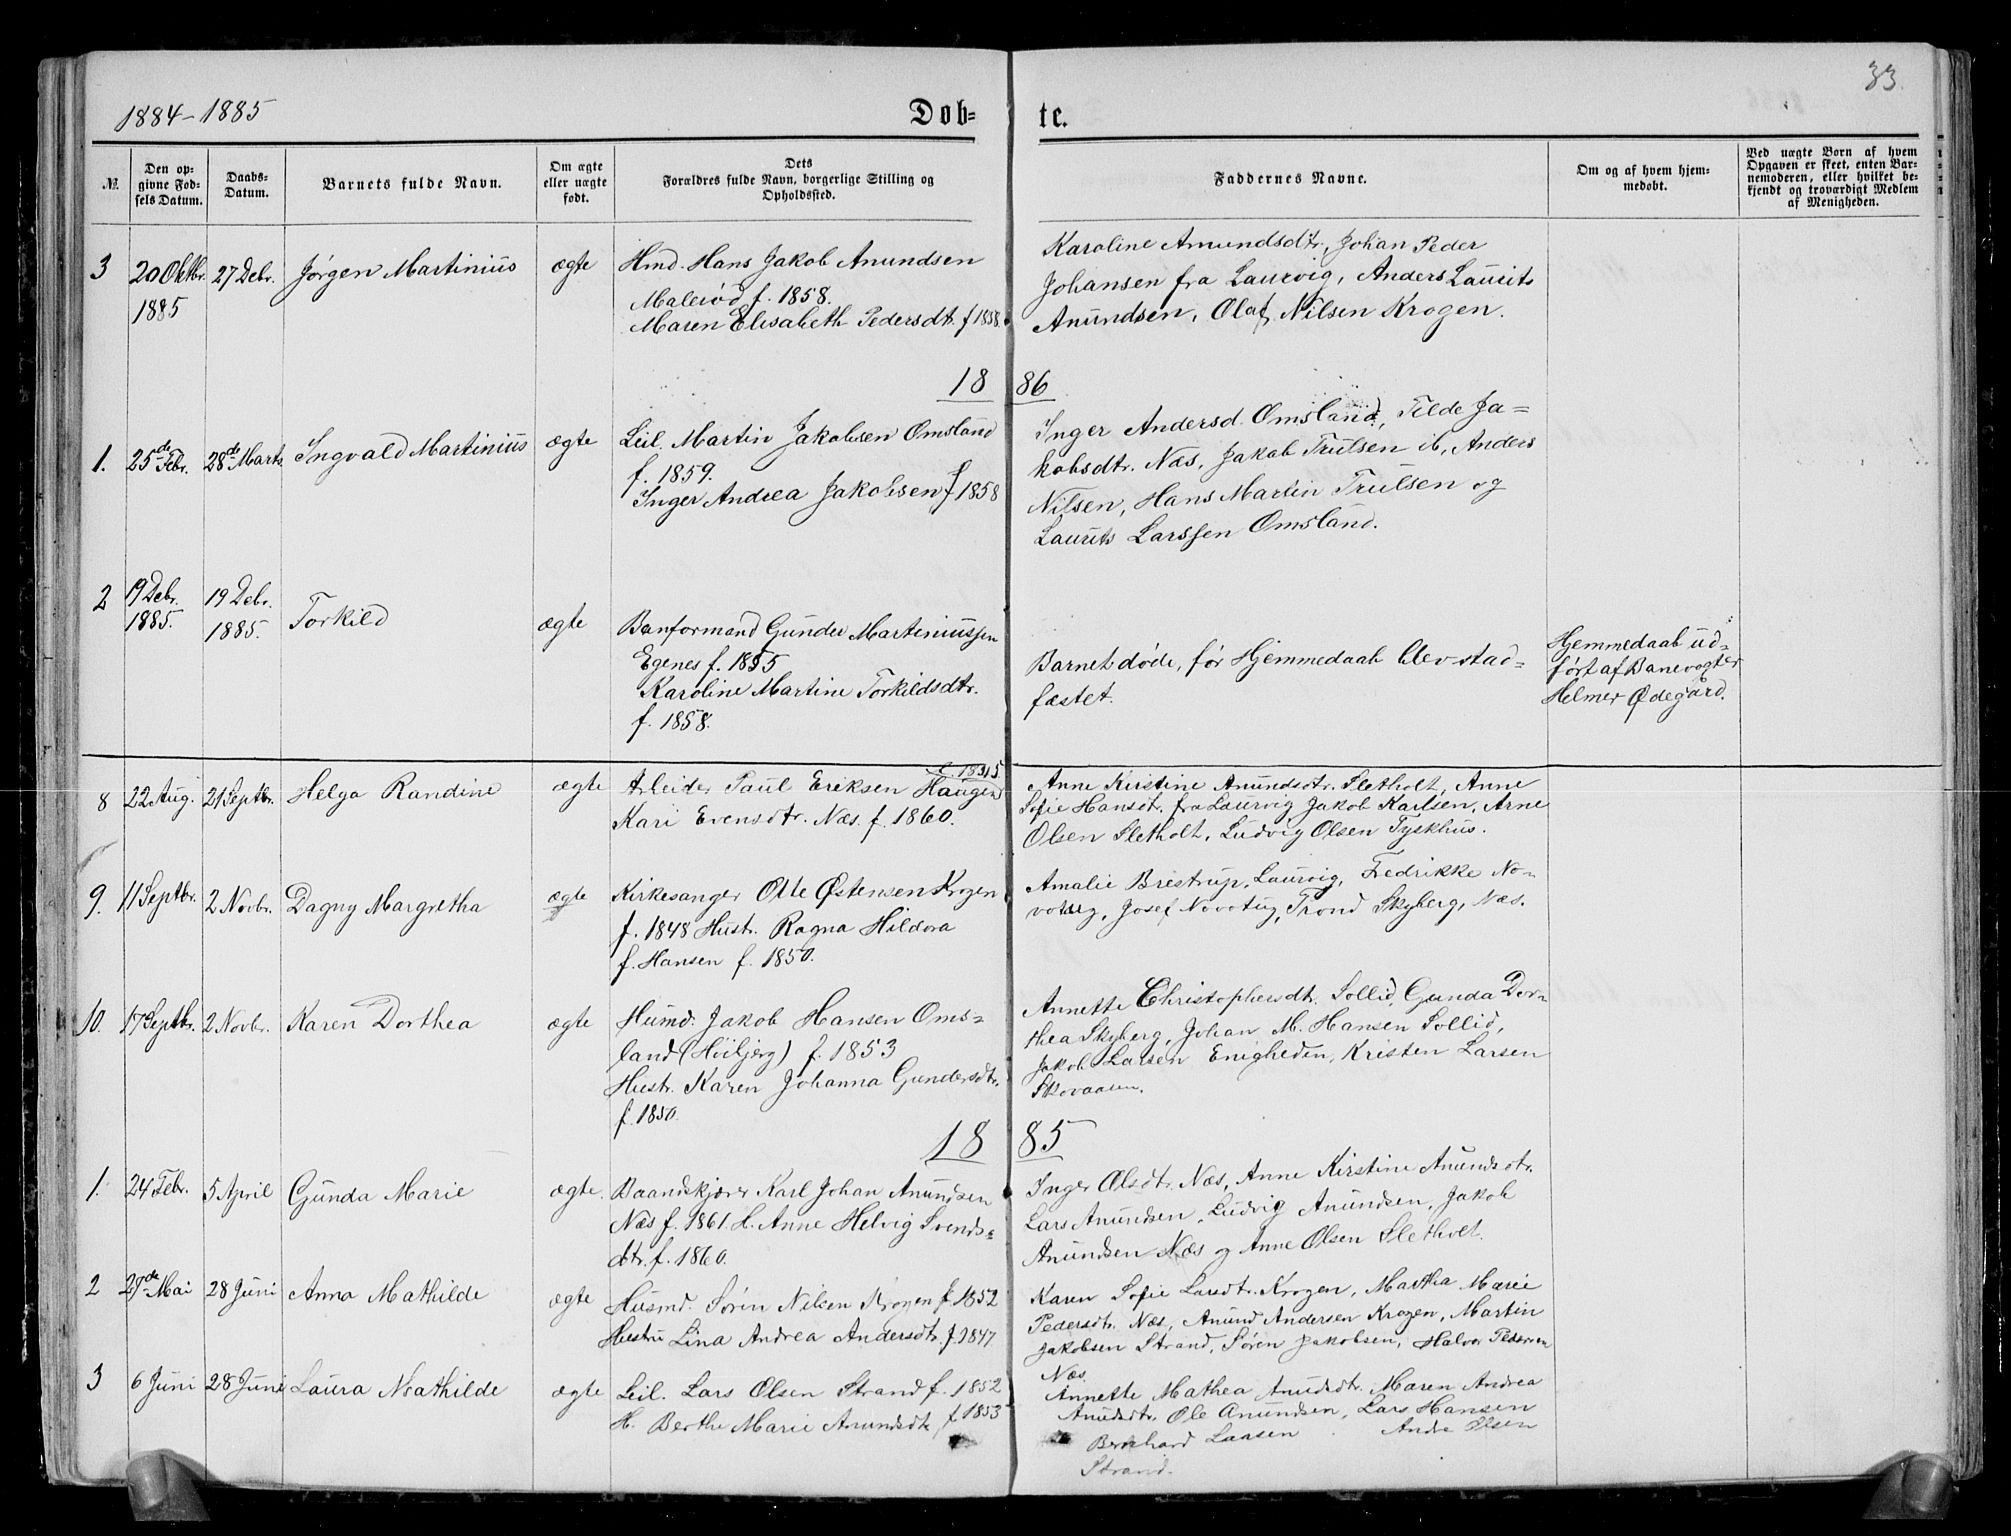 33
1884-1885
Døb-
te.
№.
Den op-
givne Fød-
sels Datum.
Daabs-
Datum.
Barnets fulde Navn.
Om ægte
eller uægte
født.
Dets
Forældres fulde Navn, borgerlige Stilling og
Opholdssted.
Faddernes Navne.
Om og af hvem hjem-
medøbt.
Ved uægte Børn af hvem
Opgaven er skeet, enten Bar-
nemoderen, eller hvilket be-
kjendt og troværdigt Medlem
af Menigheden.
3
20 Oktbr.
1885
27 Debr.
Jørgen Martinius
ægte
Hmd. Hans Jakob Anundsen
Malerød f. 1858.
Maren Elisabeth Pedersdtr. f 1858.
Karoline Amundsdtr, Johan Peder
Johansen fra Laurvig, Anders Laurits
Anundsen, Olaf Nilsen Krogen.
18 86
1.
25de Febr.
28de Marts
Ingvald Martinius
ægte
Leil. Martin Jakobsen Omsland
f. 1859.
Inger Andrea Jakobsen f 1858
Inger Andersd. Omsland, Tilde Ja=
kobsdtr. Næs, Jakob Trulsen ib, Anders
Nilsen, Hans Martin Trulsen og
Laurits Larssen Omsland.
2
19 Debr.
1885.
19 Debr.
1885.
Torkild
ægte
Banformand Gunder Martiniussen
Egenes f. 1855
Karoline Martine Torkildsdtr.
f. 1858.
Barnet døde, før Hjemmedaab blev stad=
fæstet.
Hjemmedaab ud=
ført af Banevogter
Helmer Ødegård.
8
22 Aug.
21 Septbr.
Helga Randine
ægte
Arbeider Paul Eriksen Haugen
Kari Evensdtr. Næs. f. 1860.
Anne Kirstine Anundsdtr. Sletholt, Anne
Sofie Hansdtr. fra Laurvig Jakob Karlsen, Arne
Olsen Sletholt, Ludvig Olsen Tyskhus.
9.
11 Septbr.
2 Novbr.
Dagny Margretha
ægte
Kirkesanger Otte Østensen Krogen
f. 1848 Hustr. Ragna Hildora
f. Hansen f. 1850.
Amalie Brestrup, Laurvig, Fredrikke No-
votny, Josef Novotny, Trond Skyberg, Næs.
10.
17 Septbr.
2 Novbr.
Karen Dorthea
ægte
Husmd. Jakob Hansen Oms=
land (Høibjerg) f. 1853
Hustr. Karen Johanna Gundersdtr.
f. 1850.
Annette Christophersdtr. Sollid, Gunda Dor=
thea Skyberg, Johan M. Hansen Sollid,
Jakob Larsen Enigheden, Kristen Larsen
Skovaasen.
18 85
1.
24 Febr.
5 April
Gunda Marie
ægte
Baandskjærer Karl Johan Anundsen
Næs f. 1861. H. Anne Helvig Svends=
dtr. f. 1860.
Inger Olsdtr. Næs, Anne Kirstine Anundsdtr.
Lars Anundsen, Ludvig Anundsen, Jakob
Anundsen Næs og Anne Olsen Slethvet.
2
27de Mai
28 Juni
Anna Mathilde
ægte
Husmd. Sørin Nilsen Krogen f. 1852
Hustru Lina Andrea Andersdtr. f. 1847
Karen Sofie Larsdtr. Krogen, Martha Marie
Pedersdtr. Næs, Anund Andersen Krogen, Martin
Jakobsen Strand, Søren Jakobsen, Halvor Pedersen
Næs
3
6 Juni
28 Juni
Laura Mathilde
ægte
Leil. Lars Olsen Strand f. 1852
H. Berthe Marie Anundsdtr f 1853
Annette Mathea Anudsdtr. Maren Andrea
Anudsdtr. Ole Anundsen, Lars Hansen
Bernhard Laasen Andr. Olsen
Strand.